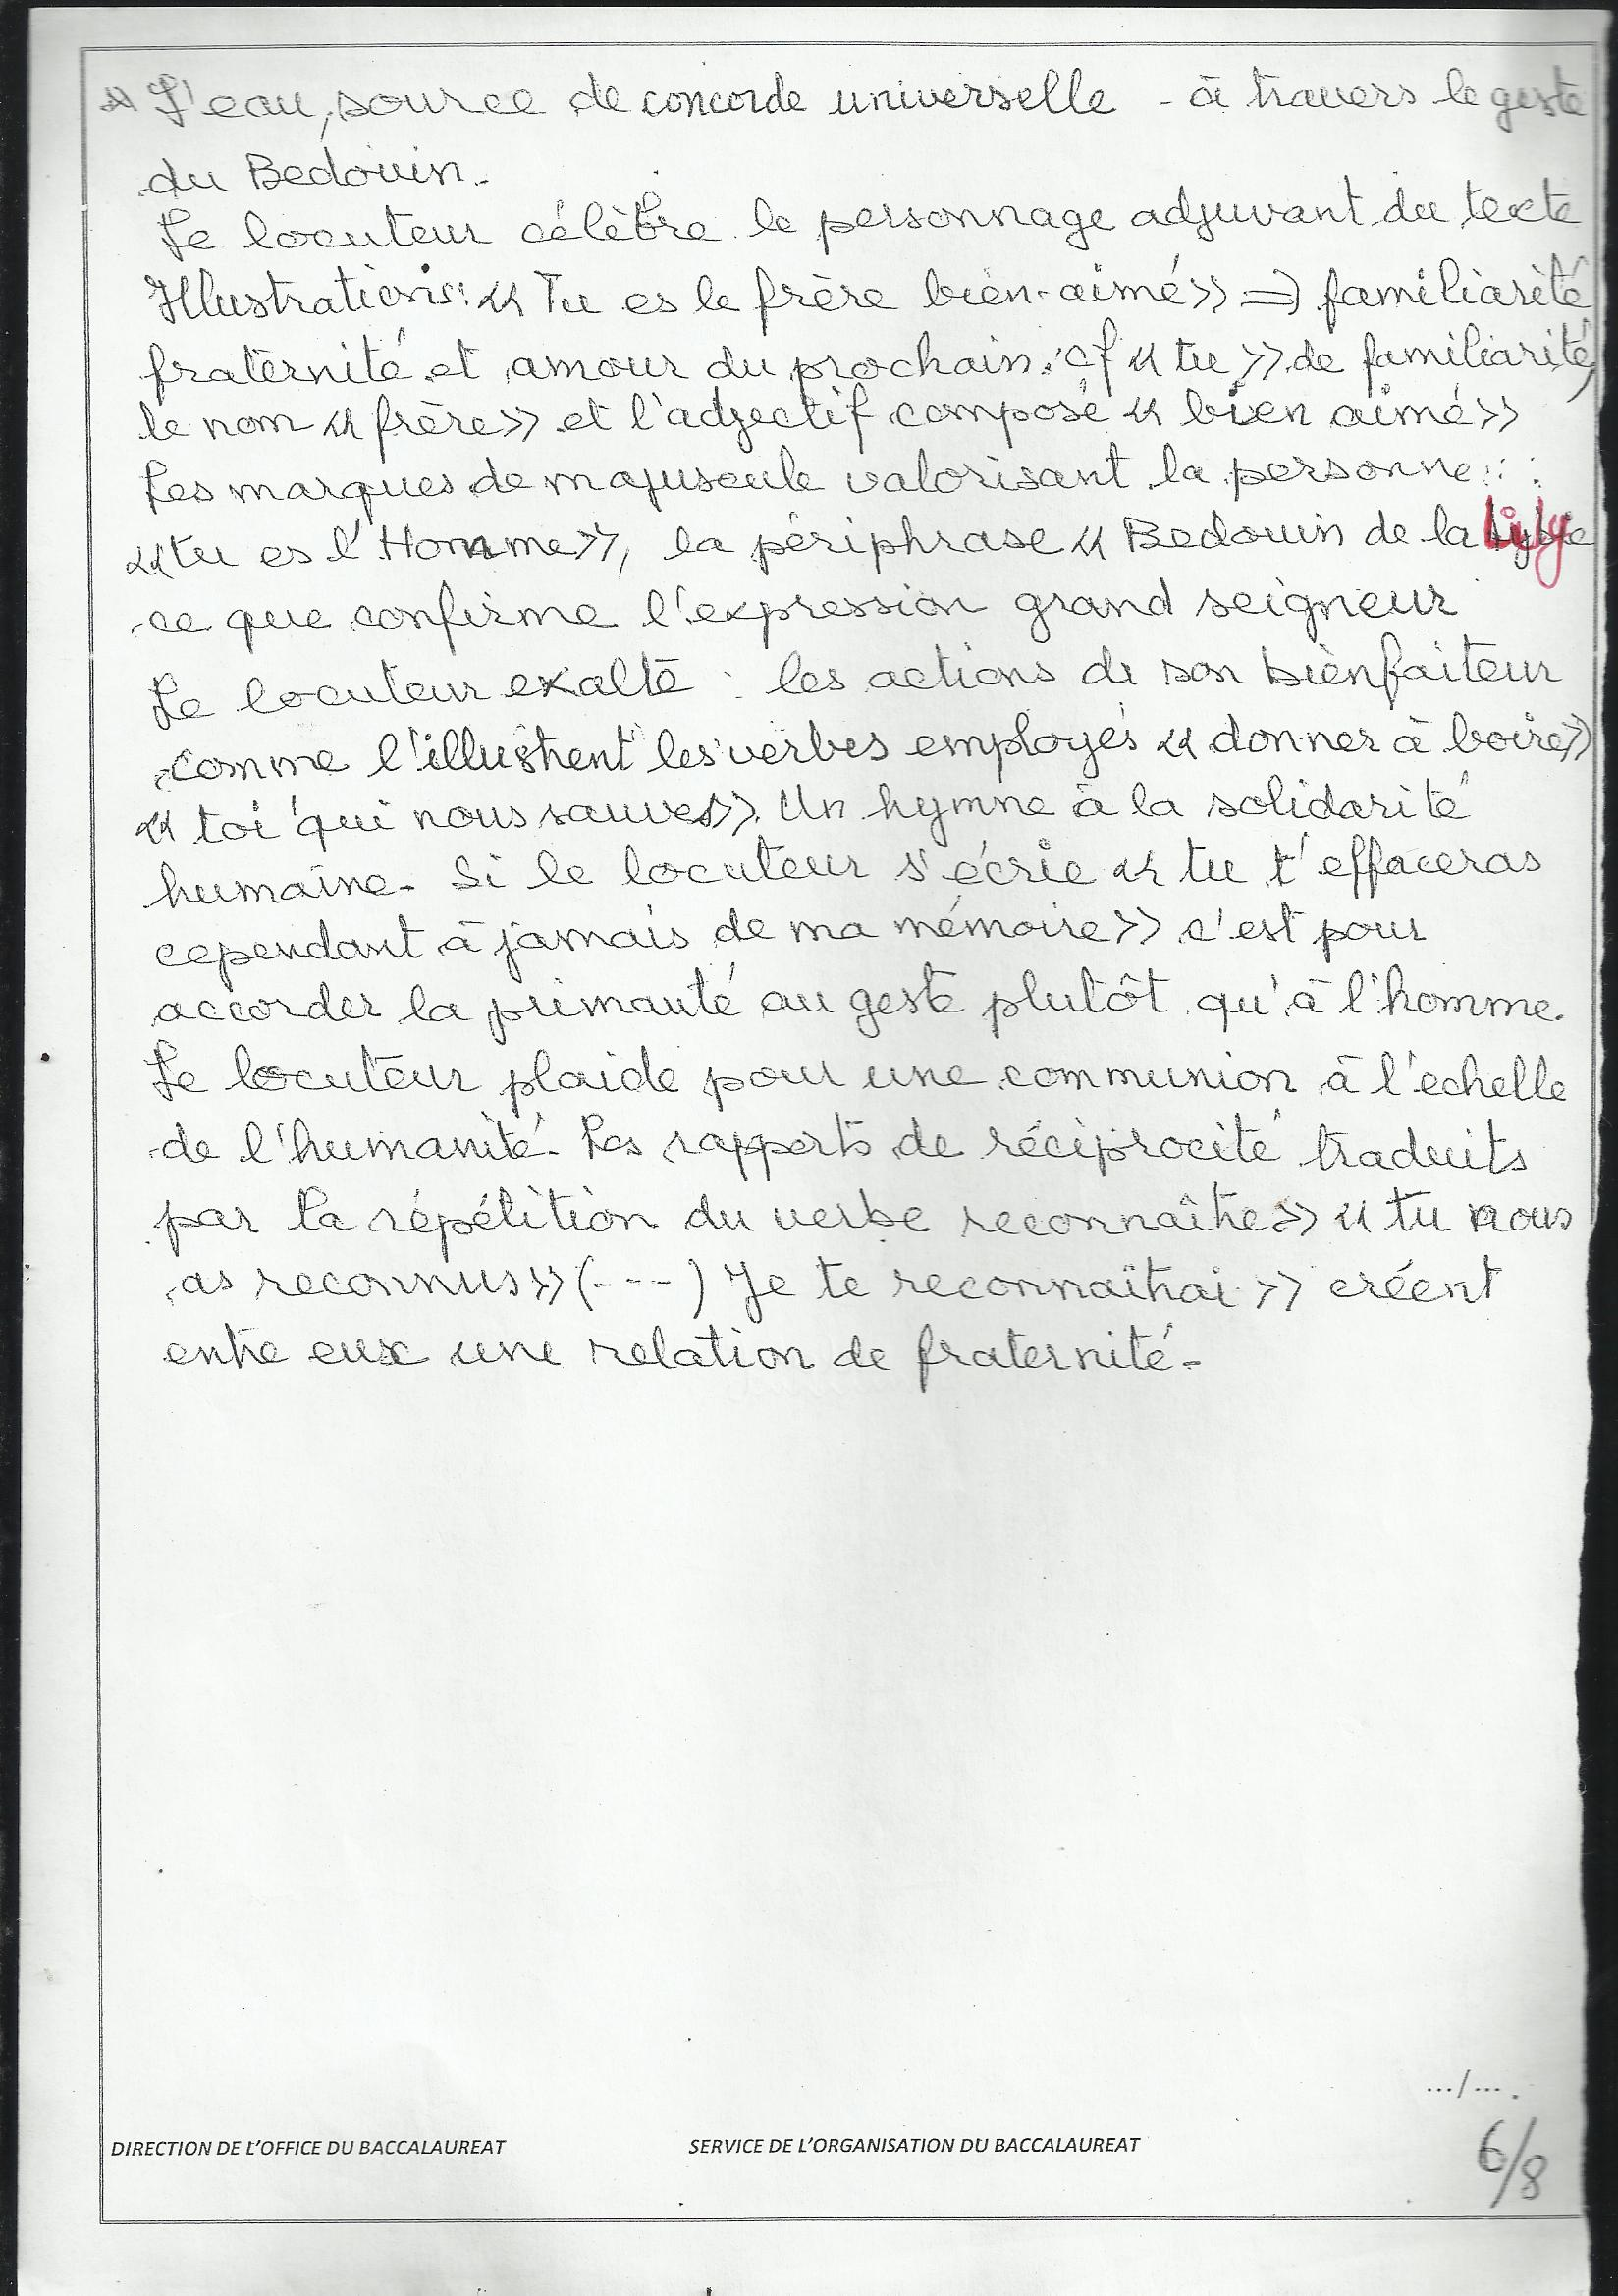 * L'eau, source de concorde universelle - à travers le geste
du Bedouin.
Le locuteur célèbre le personnage adjuvant du texte
Illustrations : « Tu es le frère bien-aimé » => familiarité
fraternité et amour du prochain. cf « tu » de familiarité,
le nom « frère » et l'adjectif composé « bien aimé »
Les marques de majuscule valorisant la personne :
« tu es l'Homme », la périphrase « Bedouin de la
ce que confirme l'expression grand seigneur
Le locuteur exalte : les actions de son bienfaiteur
comme l'illustrent les verbes employés « donner à boire »
« toi qui nous sauves ». Un hymne à la solidarité
humaine. Si le locuteur s'écrie « tu t'effaceras
cependant à jamais de ma mémoire » c'est pour
accorder la primauté au geste plutôt qu'à l'homme.
Le locuteur plaide pour une communion à l'echelle
de l'humanité. Les rapports de réciprocité traduits
par la répétition du verbe reconnaître » « tu nous
as reconnus » (---) Je te reconnaîtrai » créent
entre eux une relation de fraternité.
.../... .
DIRECTION DE L'OFFICE DU BACCALAUREAT SERVICE DE L'ORGANISATION DU BACCALAUREAT
6/8